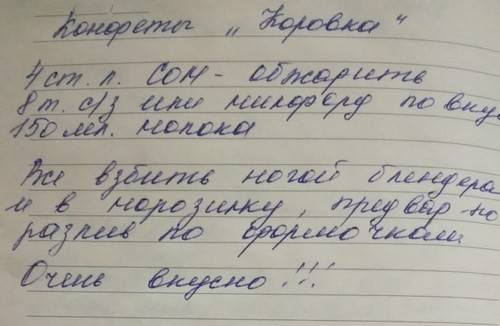 Конфеты „Коровка"
4 ст. л. СОМ - обжарить
8 т. с/з или милфорд по вку
150 мл. молока
Все взбить ногой блендера
и в морозилку, предвар-но
разлив по формочкам
Очень вкусно!!!